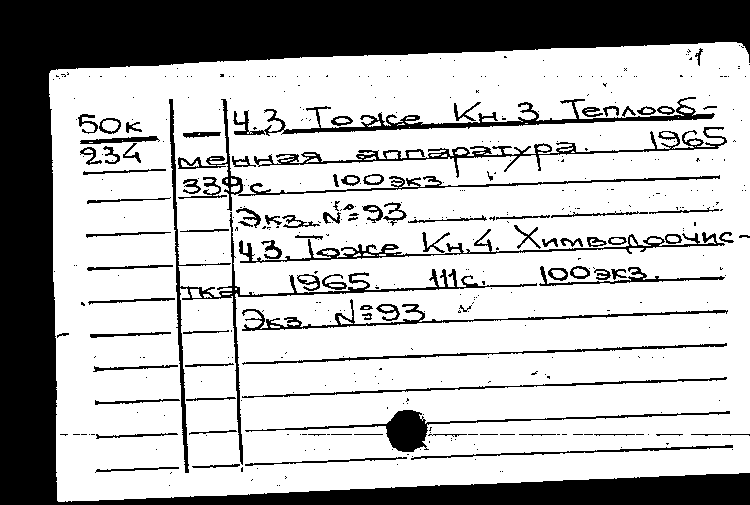 50к
234
Ч.3 Тоже Кн.3 Теплооб-
менная аппаратура. 1965
339с. 100экз
Экз. №93
Ч.3. Тоже Кн.4. Химводоочис-
тка. 1965. 111с. 100экз.
Экз. №93.